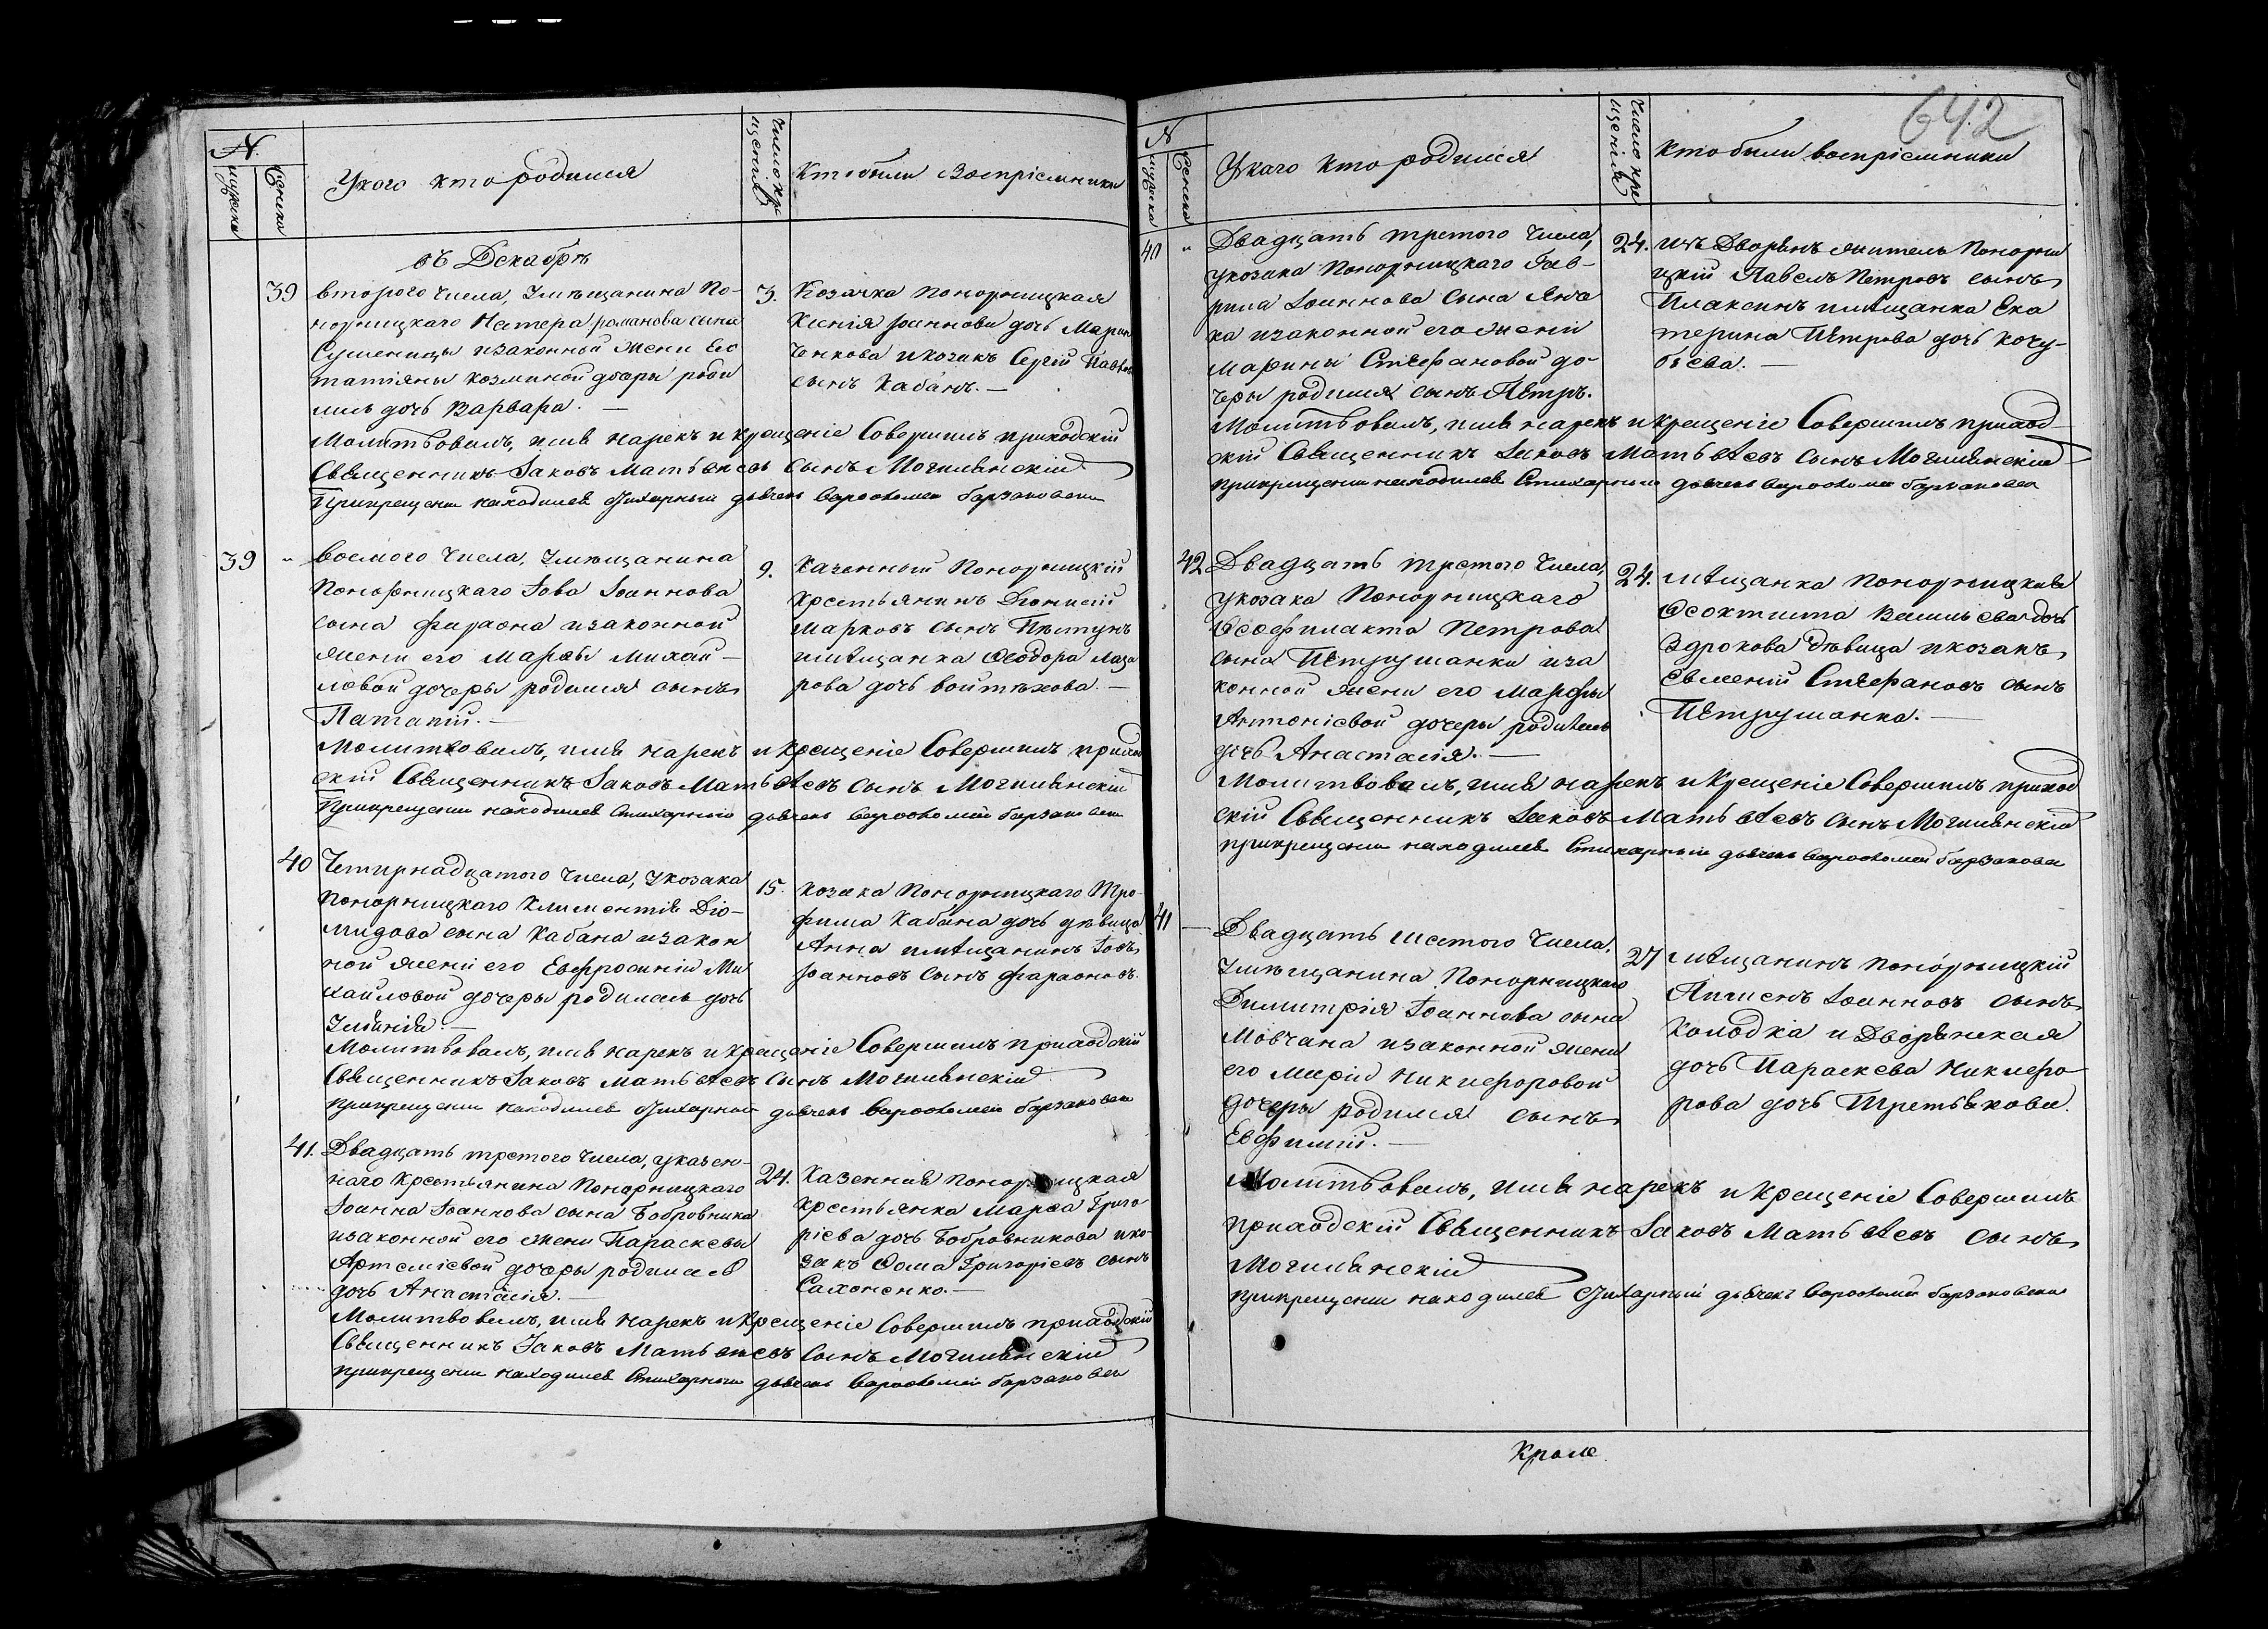 №.
мужеска
женска
У кого кто родился
Число кре
щенія
Кто были Воспріемники
въ Декабрѣ
39 втораго числа, Умѣщанина По-
норницкаго Нестера романова сына
Сушеницы изаконной жены Его
татіяны козминой дочери роди
лась дочь Варвара. —
3. Козачка понорницкая
Ксенія Іоаннова дочь Марин
ченкова икозакъ Сергій Павлов
сынъ Кабанъ. —
Молитвовалъ, имя нарекъ и крещеніе Совершилъ приходскій
Священникъ Іаковъ Матвѣевъ сынъ Могилянскій
При крещеніи находился Стихарный дьячекъ Варѳоломей барзаковскі
39 " восмого числа, Умѣщанина
Понорницкаго Іова Іоаннова
сына фараона изаконной
жены его Марѳы Михай-
ловой дочеры родился сынъ
Патапій. —
9. Казенный Понорницкій
крестьянинъ Діонисій
Марковъ сынъ Пѣтунъ
имѣщанка Ѳеодора Лаза
рова дочь войтѣхова. —
Молитвовалъ, имя нарекъ и крещеніе Совершилъ приход
скій Священникъ Іаковъ Матвѣевъ сынъ Могилянскій
При крещеніи находился Стихарный дьячекъ Варѳоломей барзаковскі
40 Четирнадцатого числа, Укозака
понорницкаго Климентія Діо-
мидова сына Кабана изакон
ной жены его Евфросиніи Ми
хайловой дочеры родилась дочь
Уліянія. —
15. козака Понорницкаго Тро-
фима Кабана дочь дѣвица
Анна имѣщанинъ Іовъ
Іоанновъ сынъ фараоновъ.
Молитвовалъ, имя нарекъ и крещеніе Совершилъ приходскій
Священникъ Іаковъ Матвѣевъ сынъ Могилянскій
при крещеніи находился Стихарный дьячекъ Варѳоломей барзаковскі
41. Двадцать третого числа, указен-
наго крестьянина Понорницкаго
Іоанна Іоаннова сына Бобровника
изаконной его жены Параскевы
Артеміевой дочеры родилась
дочь Анастасія. —
24. Казенная понорницкая
крестьянка Марѳа Григо
ріева дочь Бобровникова ико-
закъ Ѳома Григоріевъ сынъ
Сахоненко. —
Молитвовалъ, имя нарекъ и крещеніе Совершилъ приходскій
Священникъ Іаковъ Матвѣевъ сынъ Могилянскій
при крещеніи находился Стихарный дьячекъ Варѳоломей барзаковскі
642
№
мужеска
женска
У кого кто родился
Число кре
щенія
кто были воспріемники
40 " Двадцать третого числа,
укозака Понорницкаго Гав-
рила Іоаннова сына Яна
ка изаконной его жены
Марини Стефановой до-
черы родился сынъ Пётръ.
24. изъ Дворянъ житель Понорни
цкій Павелъ Петровъ сынъ
Плаксинъ имѣщанка Ека
терина Пётрова дочь кочу-
бѣева. —
Молитвовалъ, имя нарекъ и крещеніе Совершилъ приход
скій Священникъ Іаковъ Матвѣевъ сынъ Могилянскій
при крещеніи находился Стихарный дьячекъ Варѳоломей барзаковскі
42 Двадцать третого числа
укозака Понорницкаго
Ѳеофилакта Петрова
сына Пётрушанки иза
конной жены его Марфы
Антоніевой дочеры родилась
дочь Анастасія. —
24. мѣщанка понорницкая
Ѳеоктиста Васильева дочь
Здрокова дѣвица икозакъ
Евгеній Стефановъ сынъ
Пётрушанка. —
Молитвовалъ, имя нарекъ и крещеніе Совершилъ приход
скій Священникъ Іаковъ Матвѣевъ сынъ Могилянскій
при крещеніи находился Стихарный дьячекъ Варѳоломей барзаковскі
41 — Двадцать шестого числа,
умѣщанина Понорницкаго
Димитрія Іоаннова сына
Мовчана изаконной жены
его Марій Никифоровой
дочеры родился сынъ
Евфимій. —
27 мѣщанинъ понорницкій
Пименъ Іоанновъ сынъ
Колодка и Дворянская
дочь Параскева Никифо
рова дочь Третьякова.
Молитвовалъ, имя нарекъ и крещеніе Совершилъ
приходскій Священникъ Іаковъ Матвѣевъ сынъ
Могилянскій
при крещеніи находился Стихарный дьячекъ Варѳоломей барзаковскі
Кроме